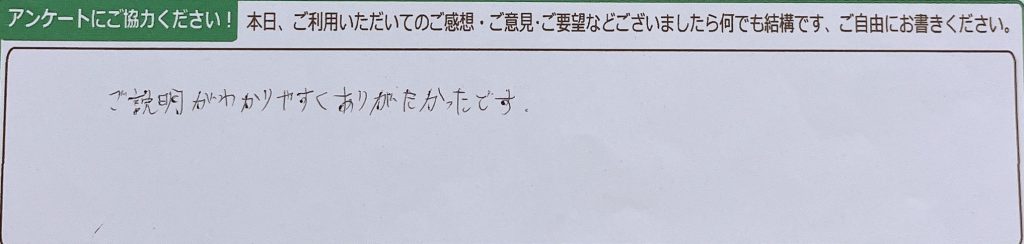 アンケートにご協力ください！
本日、ご利用いただいてのご感想・ご意見・ご要望などございましたら何でも結構です、ご自由にお書きください。
ご説明がわかりやすくありがたかったです.